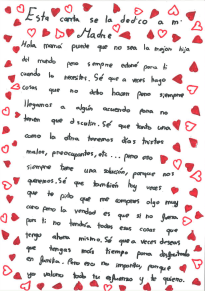 Esta carta se la dedico a mi
Madre
Hola mamá puede que no sea la mejor hija
del mundo pero siempre estaré para ti
cuando lo necesites. Sé que a veces hago
cosas que no debo hacer pero siempre
llegamos a algún acuerdo para no
tener que discutir. Sé que tanto una
como la otra tenemos días tristes
malos, preocupantes, etc... pero eso
siempre tiene una solución, porque nos
queremos. Sé que también hay veces
que te pido que me compres algo muy
caro pero la verdad es que si no fuera
por ti no tendría todas esas cosas que
tengo ahora mismo. Sé que a veces deseas
que tengas más tiempo para disfrutarlo
en familia. Pero eso no importa, porque
yo valoro todo tu esfuerzo y te quiero.